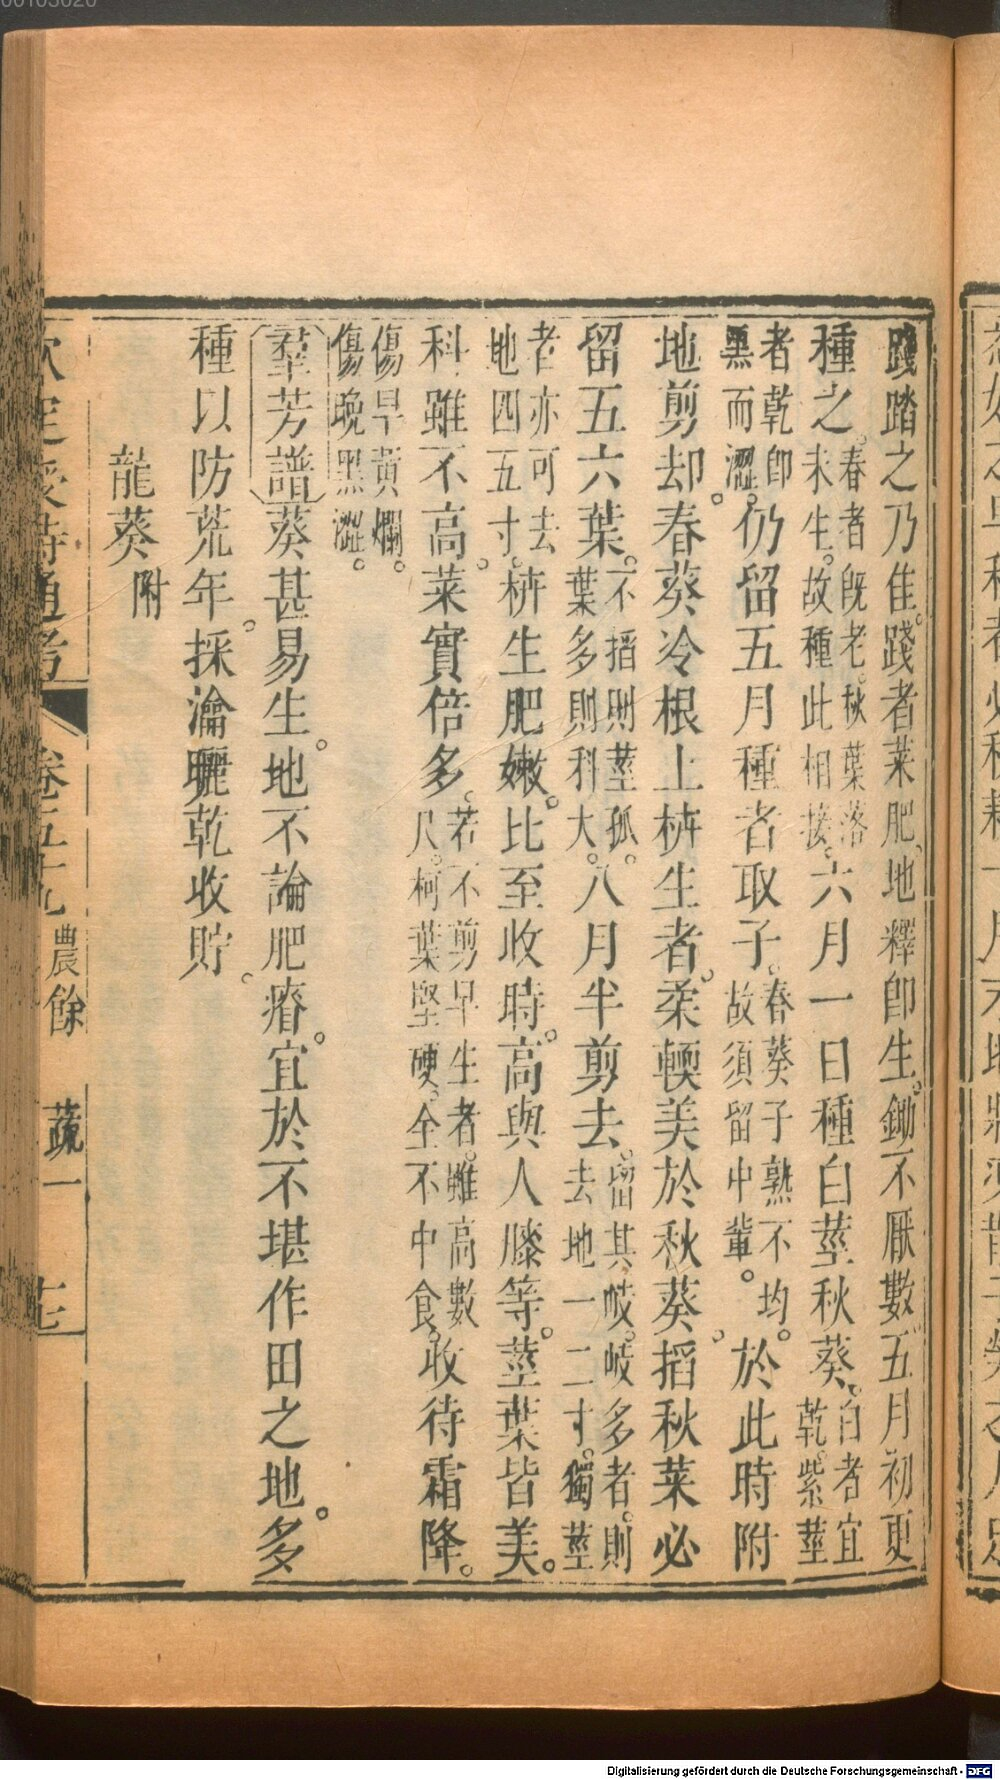 踐踏之乃佳。踐者菜肥、地釋卽生。鋤不厭數五月初更
種之。春者旣老。秋葉落未生。故種此相接。六月一日種白莖秋葵。白者宜乾。紫莖
者乾卽黑而澀。仍留五月種者取子。春葵子熟不均。故須留中輩。於此時附
地剪却。春葵冷根上枿生者。柔輭美於秋葵。搯秋菜必
留五六葉。不搯則莖孤。葉多則科大。八月半剪去。留其岐。岐多者。則去地一二寸。獨莖
者亦可去地四五寸。枿生肥嫩。比至收時。高與人膝等。莖葉皆美。
科雖不高。菜實倍多。若不剪早生者。雖高數尺。柯葉堅硬。全不中食。收待霜降。
傷早黃爛。傷晚黑澀。
羣芳譜葵甚易生。地不論肥瘠。宜於不堪作田之地。多
種以防荒年。採瀹曬乾收貯。
龍葵附
欽定授時通考 卷五十九 農餘 蔬一 七
Digitalisierung gefördert durch die Deutsche Forschungsgemeinschaft - DFG